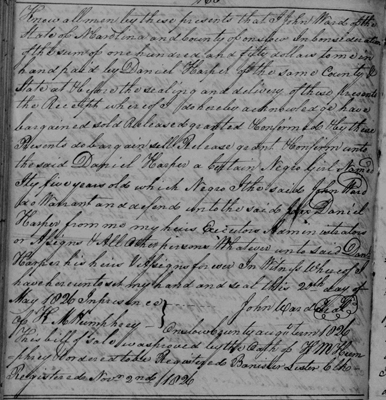 Know all men by these presents that I John Ward of the
State of N Carolina and County of onslow In Consideration
of the sum of one hundred and fifty dollars to me in
hand paid by Daniel Harper of the same County &
State at & before the sealing and delivery of these presents
the Receipt whereof I do hereby acknowledge have
bargained sold & Released granted Confirmed & by these
Presents do bargain sell Release grant Confirm unto
the said Daniel Harper a Certain Negro Girl Named
five years old which Negro I the said John Ward
do Warrant and defend unto the said Daniel
Harper from me my heirs Executors Administrators
or Assigns & All other persons Whatever unto said Danl
Harper his heirs & Assigns forever In Witness Whereof I
have hereunto set my hand and seal this day of
May 1826 In presence
of H M Humphrey } John Ward Seal
Onslow County august Term 1826
This bill of sale was proved by the Oath of H M Hum
phrey & ordered to be Registered Banister Lester Clk
Registered Novr 2nd 1826